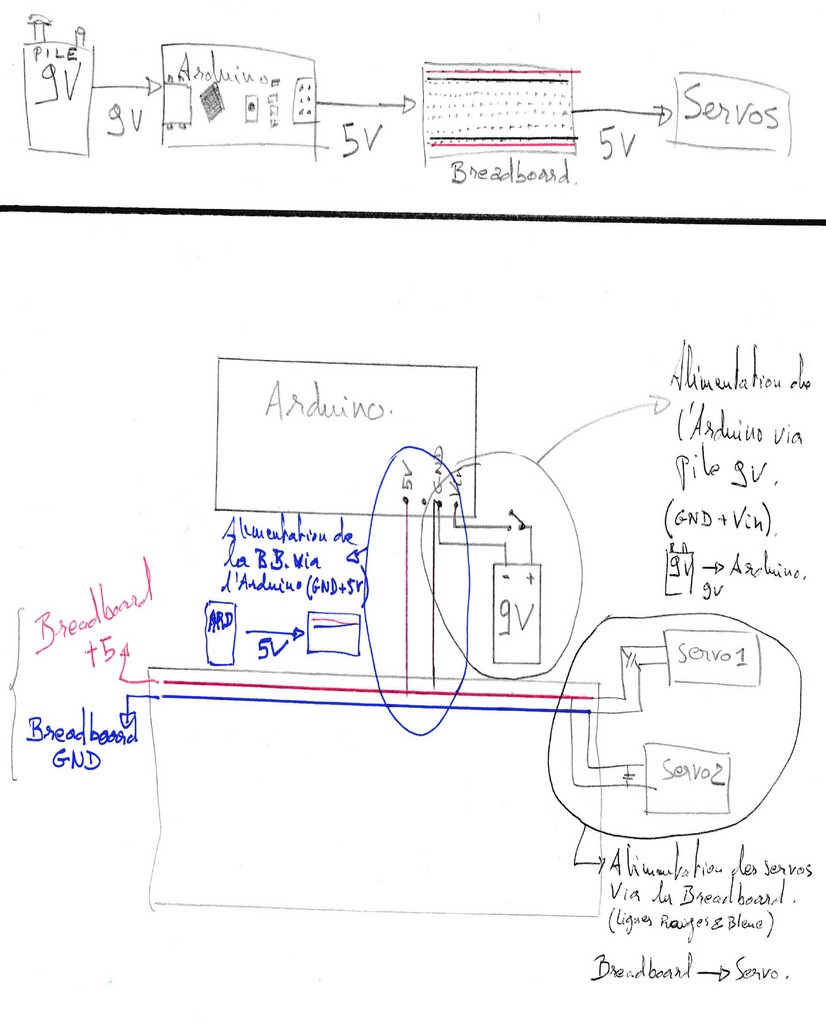 PILE
9V
Arduino
9V
5V
Breadboard.
5V
Servos
Arduino.
5V
GND
Vin
Alimentation de
l'Arduino via
pile 9V.
(GND + Vin)
9V → Arduino.
9V
Alimentation de
la B.B. via
l'Arduino (GND+5V)
ARD
5V
- +
9V
Breadboard
+5
Breadboard
GND
Servo1
Servo2
Alimentation des servos
Via la Breadboard.
(Lignes Rouges & Bleue)
Breadboard → Servo.